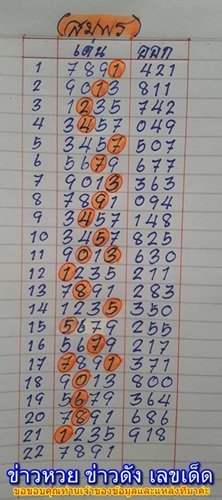 สมพร
เด่น ออก
1 7891 421
2 9013 811
3 1235 742
4 3457 049
5 3457 507
6 5679 677
7 9013 363
8 7891 094
9 3457 148
10 3457 825
11 9013 630
12 1235 211
13 7891 283
14 1235 350
15 5679 255
16 5679 217
17 7891 371
18 9013 800
19 5679 364
20 7891 686
21 1235 918
22 7891
ข่าวหวย ข่าวดัง เลขเด็ด
ขอขอบคุณท่านเจ้าของข้อมูลและแหล่งที่มาค่ะ